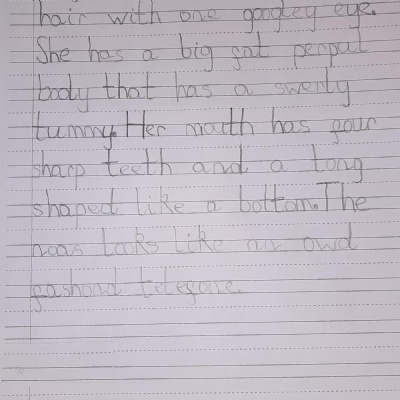 hair with one googley eye.
She has a big fat perpul
body that has a swerly
tummy. Her mouth has four
sharp teeth and a tong
shaped like a bottom. The
noas looks like an owd
fashond telefone.